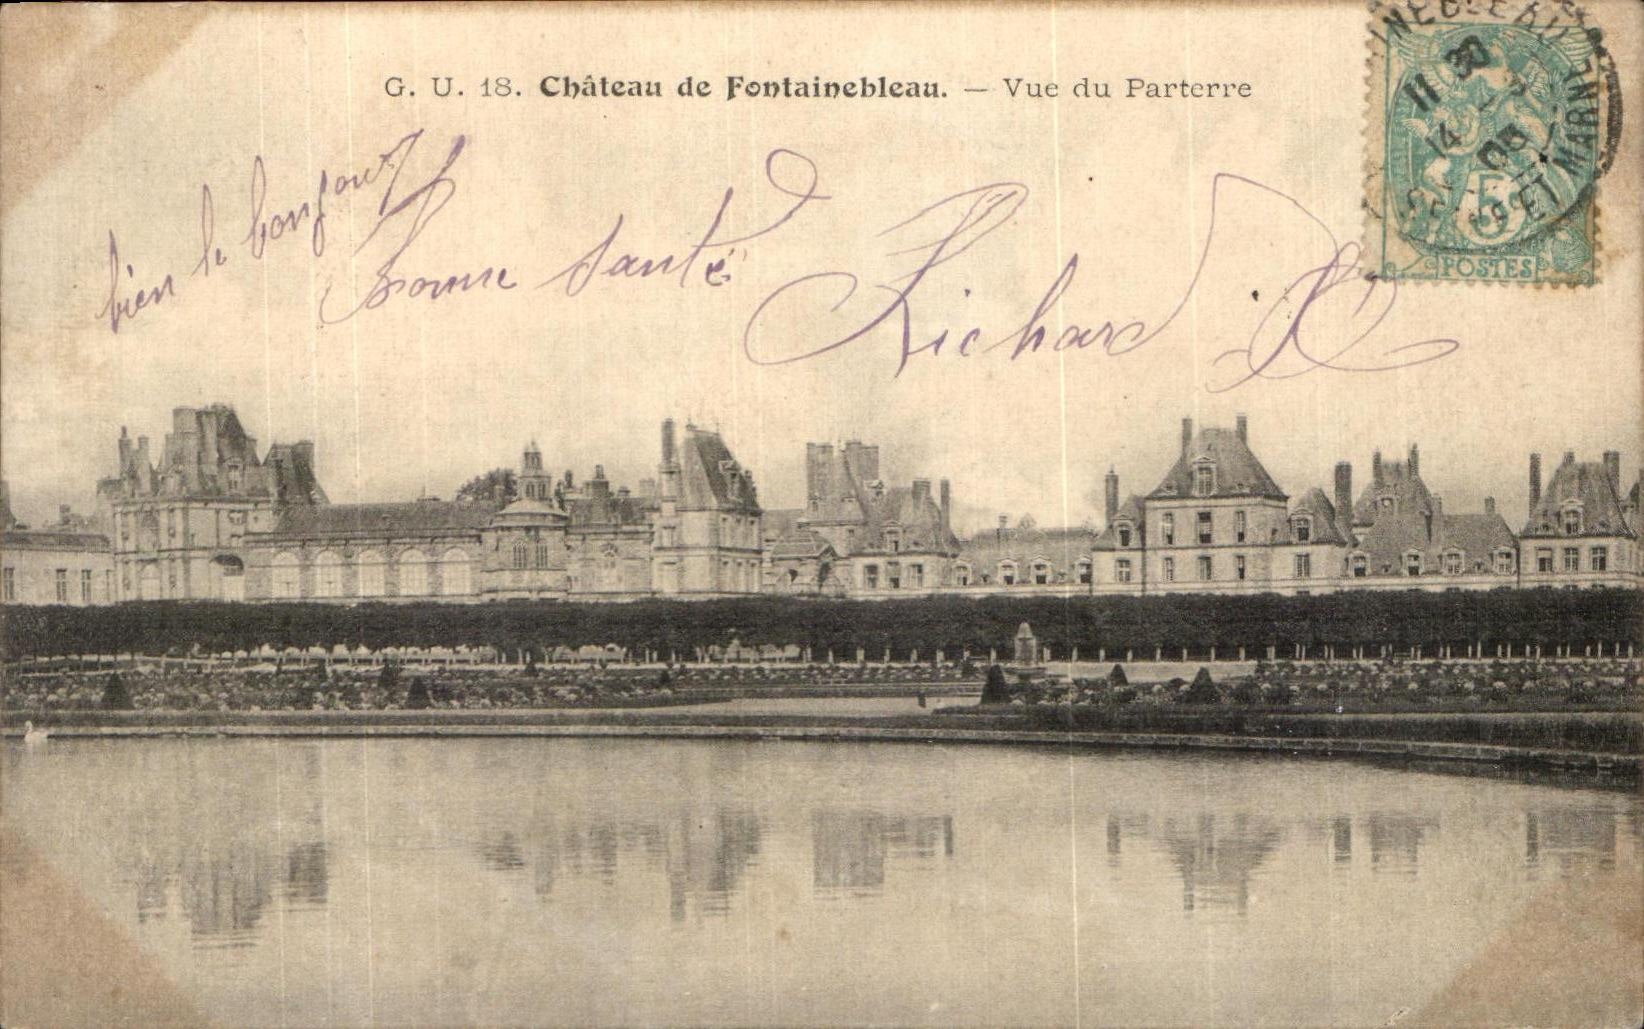 G. U. 18. Château de Fontainebleau. — Vue du Parterre
bien le bonjour
Bonne santé
Richard
INEBLEAU
11 30
14
05
SEINE ET MARNE
5
POSTES